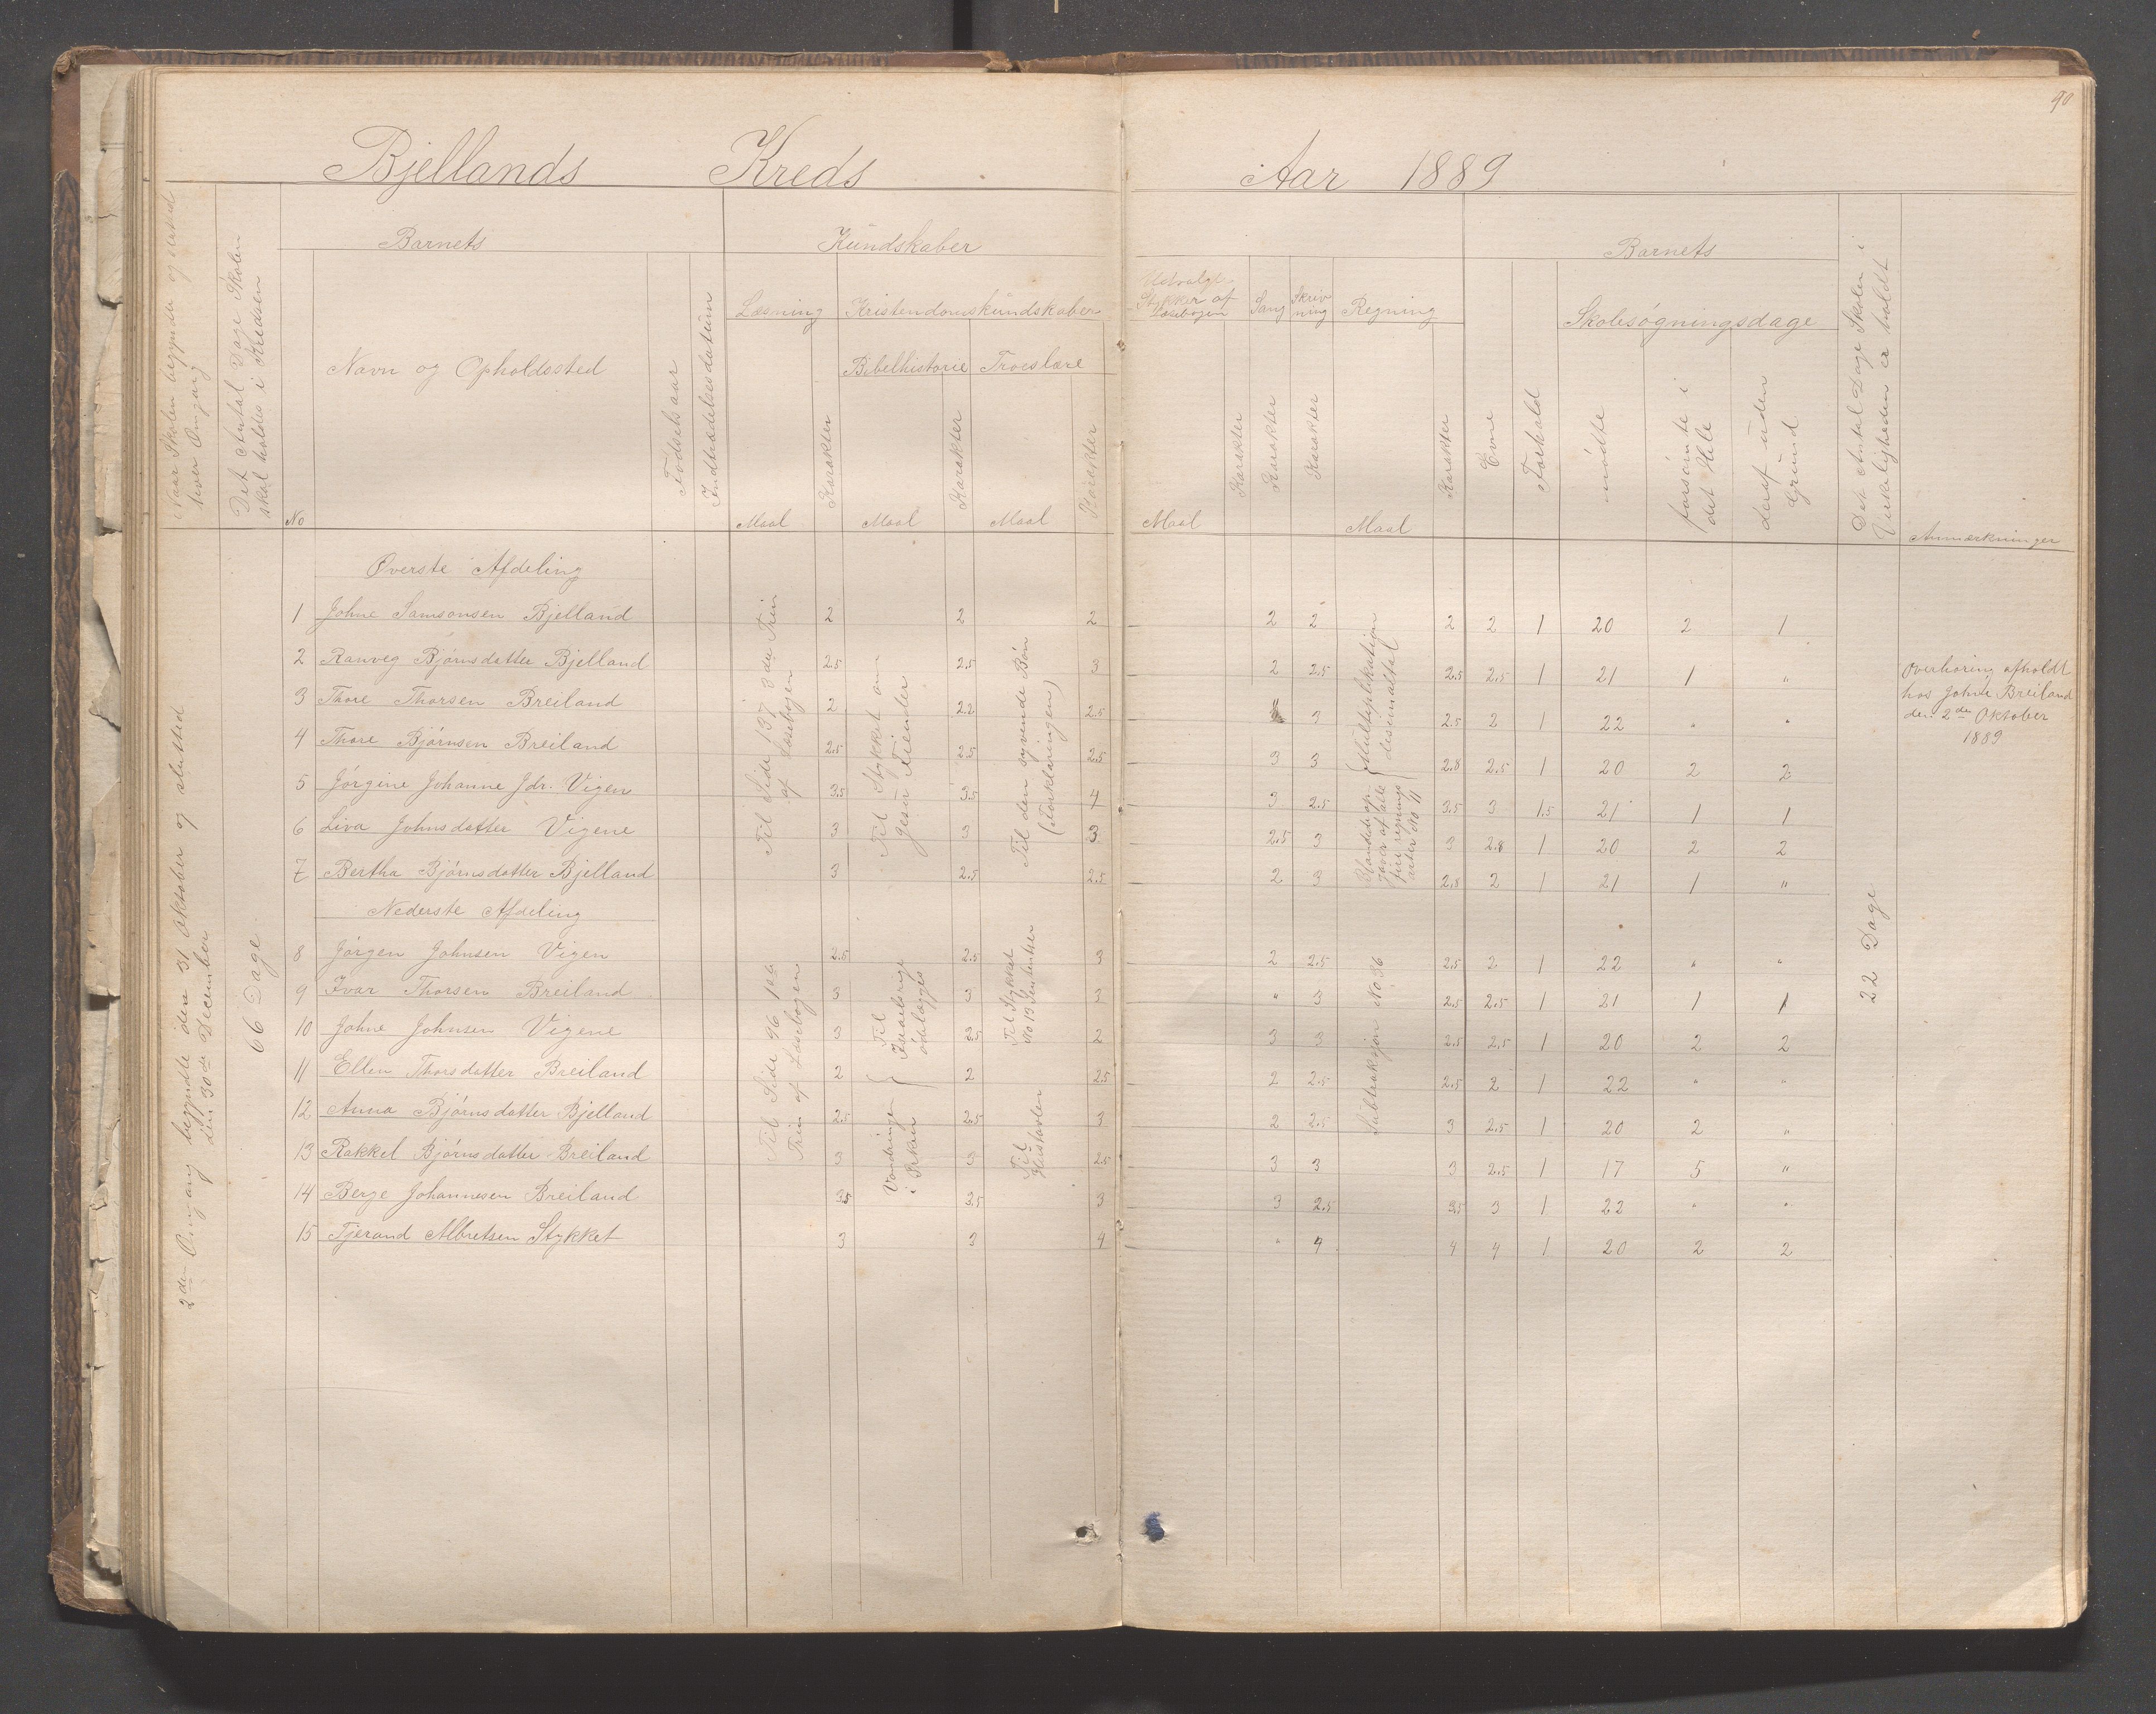 90
Bjellands Kreds
Aar 1889
Naar Skolen begyndte og slutted
hver Omgang
Det Antal Dage Skolen
skal holdes i Kredsen
Barnets
Kundskaber
No
Navn og Opholdssted
Fødselsaar
Indtrædelsesdatum
Læsning
Kristendomskundskaber
Bibelhistorie
Troeslære
Maal
Karakter
Maal
Karakter
Maal
Karakter
Udvalgt
Stykker af
Læsebogen
Sang
Skriv
ning
Regning
Maal
Karakter
Karakter
Karakter
Maal
Karakter
Barnets
Evne
Forhold
Skolesøgningsdage
mødte
forsömte i
det Hele
deraf uden
Grund
Det Antal Dage Skolen i
Virkeligheden er holdt
Anmærkninger
2den Omgang begyndte den 31 Oktober og slutted
den 30de December
66 Dage
Øverste Afdeling
1 Johne Samsonsen Bjelland 2 2 2 2 2 2 2 1 20 2 1
2 Ranveg Bjørnsdatter Bjelland 2.5 2.5 3 2 2.5 2.5 2.5 1 21 1 "
3 Thore Thorsen Breiland 2 2.2 2.5 " 3 2.5 2 1 22 " "
4 Thore Bjørnsen Breiland 2.5 2.5 2.5 3 3 2.8 2.5 1 20 2 2
5 Jørgine Johanne Jdr. Vigen 3.5 3.5 4 3 2.5 3.5 3 1.5 21 1 1
6 Liva Johnsdatter Vigene 3 3 3 2.5 3 3 2.8 1 20 2 2
7 Bertha Bjørnsdatter Bjelland 3 2.5 2.5 2 3 2.8 2 1 21 1 "
Til Side 137 3die Trin
af Læsebogen
Til Stykket om
Jesu Fiender
Til den syvende Bøn
(Forklaringen)
Multiplikation
desimaltal
Blandede op-
gaver af alle
fire regnings
arter No 11
Overhøring afholdt
hos Johne Breiland
den 2den Oktober
1889
Nederste Afdeling
8 Jørgen Johnsen Vigen 2.5 2.5 3 2 2.5 2.5 2 1 22 " "
9 Ivar Thorsen Breiland 3 3 3 " 3 2.5 2.5 1 21 1 1
10 Johne Johnsen Vigene 3 3.5 2 3 3 2.5 2.5 1 20 2 2
11 Ellen Thorsdatter Breiland 2 2 2.5 2 2.5 2.5 2 1 22 " "
12 Anna Bjørnsdatter Bjelland 2.5 2.5 3 2 2.5 3 2.5 1 20 2 "
13 Rakkel Bjørnsdatter Breiland 3 3 2.5 3 3 3 2.5 1 17 5 "
14 Berge Johannesen Breiland 3.5 3.5 3 3 2.5 3.5 3 1 22 " "
15 Tjerand Albretsen Stykket 3 3 4 " 4 4 4 1 20 2 2
Til Side 96 1ste
Trin af Læsebogen
Til
Israels rige
ødelægges
Vandringen
i Ørkan
Til Stykket
No 13 Sententser
Til
Hustavlen
Subtraksjon No 36
22 Dage